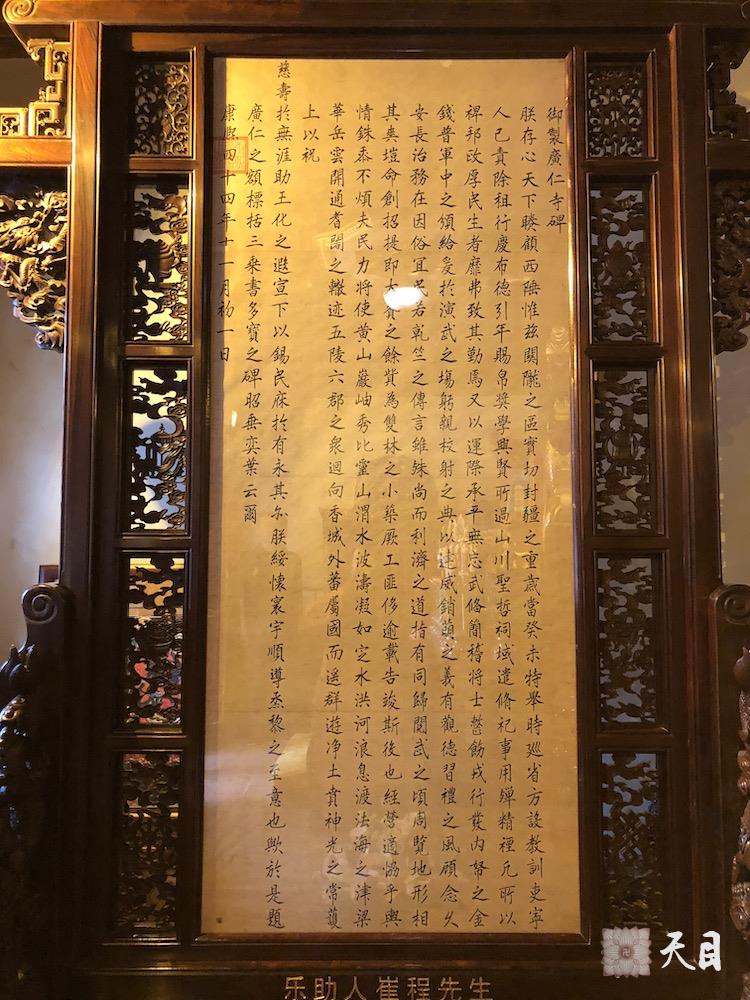 御製廣仁寺碑
朕存心天下睠顧西陲惟茲關隴之區實切封疆之重歲當癸未特舉時廵省方設教訓吏寧
人已責除租行慶布德引年賜帛獎學興賢所過山川聖哲祠域遣脩祀事用殫精禋凡所以
裨邦政厚民生者靡弗致其勤焉又以運際承平無忘武俻簡稽將士整飭戎行發內帑之金
錢普軍中之頒給爰於演武之塲躬親校射之典以建威銷萌之義有觀德習禮之風顧念久
安長治務在因俗宜民若乾竺之傳言雖殊尚而利濟之道指有同歸閱武之頃周覽地形相
其奥塏命創招提即大賚之餘貲為雙林之小築厥工匪侈逾載告竣斯役也經營適恊乎輿
情銖黍不煩夫民力將使黄山巖岫秀比靈山渭水波濤凝如定水洪河浪息渡法海之津梁
華岳雲開通耆闍之轍迹五陵六郡之衆迴向香城外蕃屬國而遥群遊净土賁神光之常護
上以祝
慈壽於無涯助王化之遐宣下以錫民庥於有永其尒朕綏懷寰宇順導烝黎之至意也歟於是題
廣仁之額標括三乘書多寶之碑昭垂奕葉云爾
康熙四十四年十一月初一日
乐助人崔程先生
天目